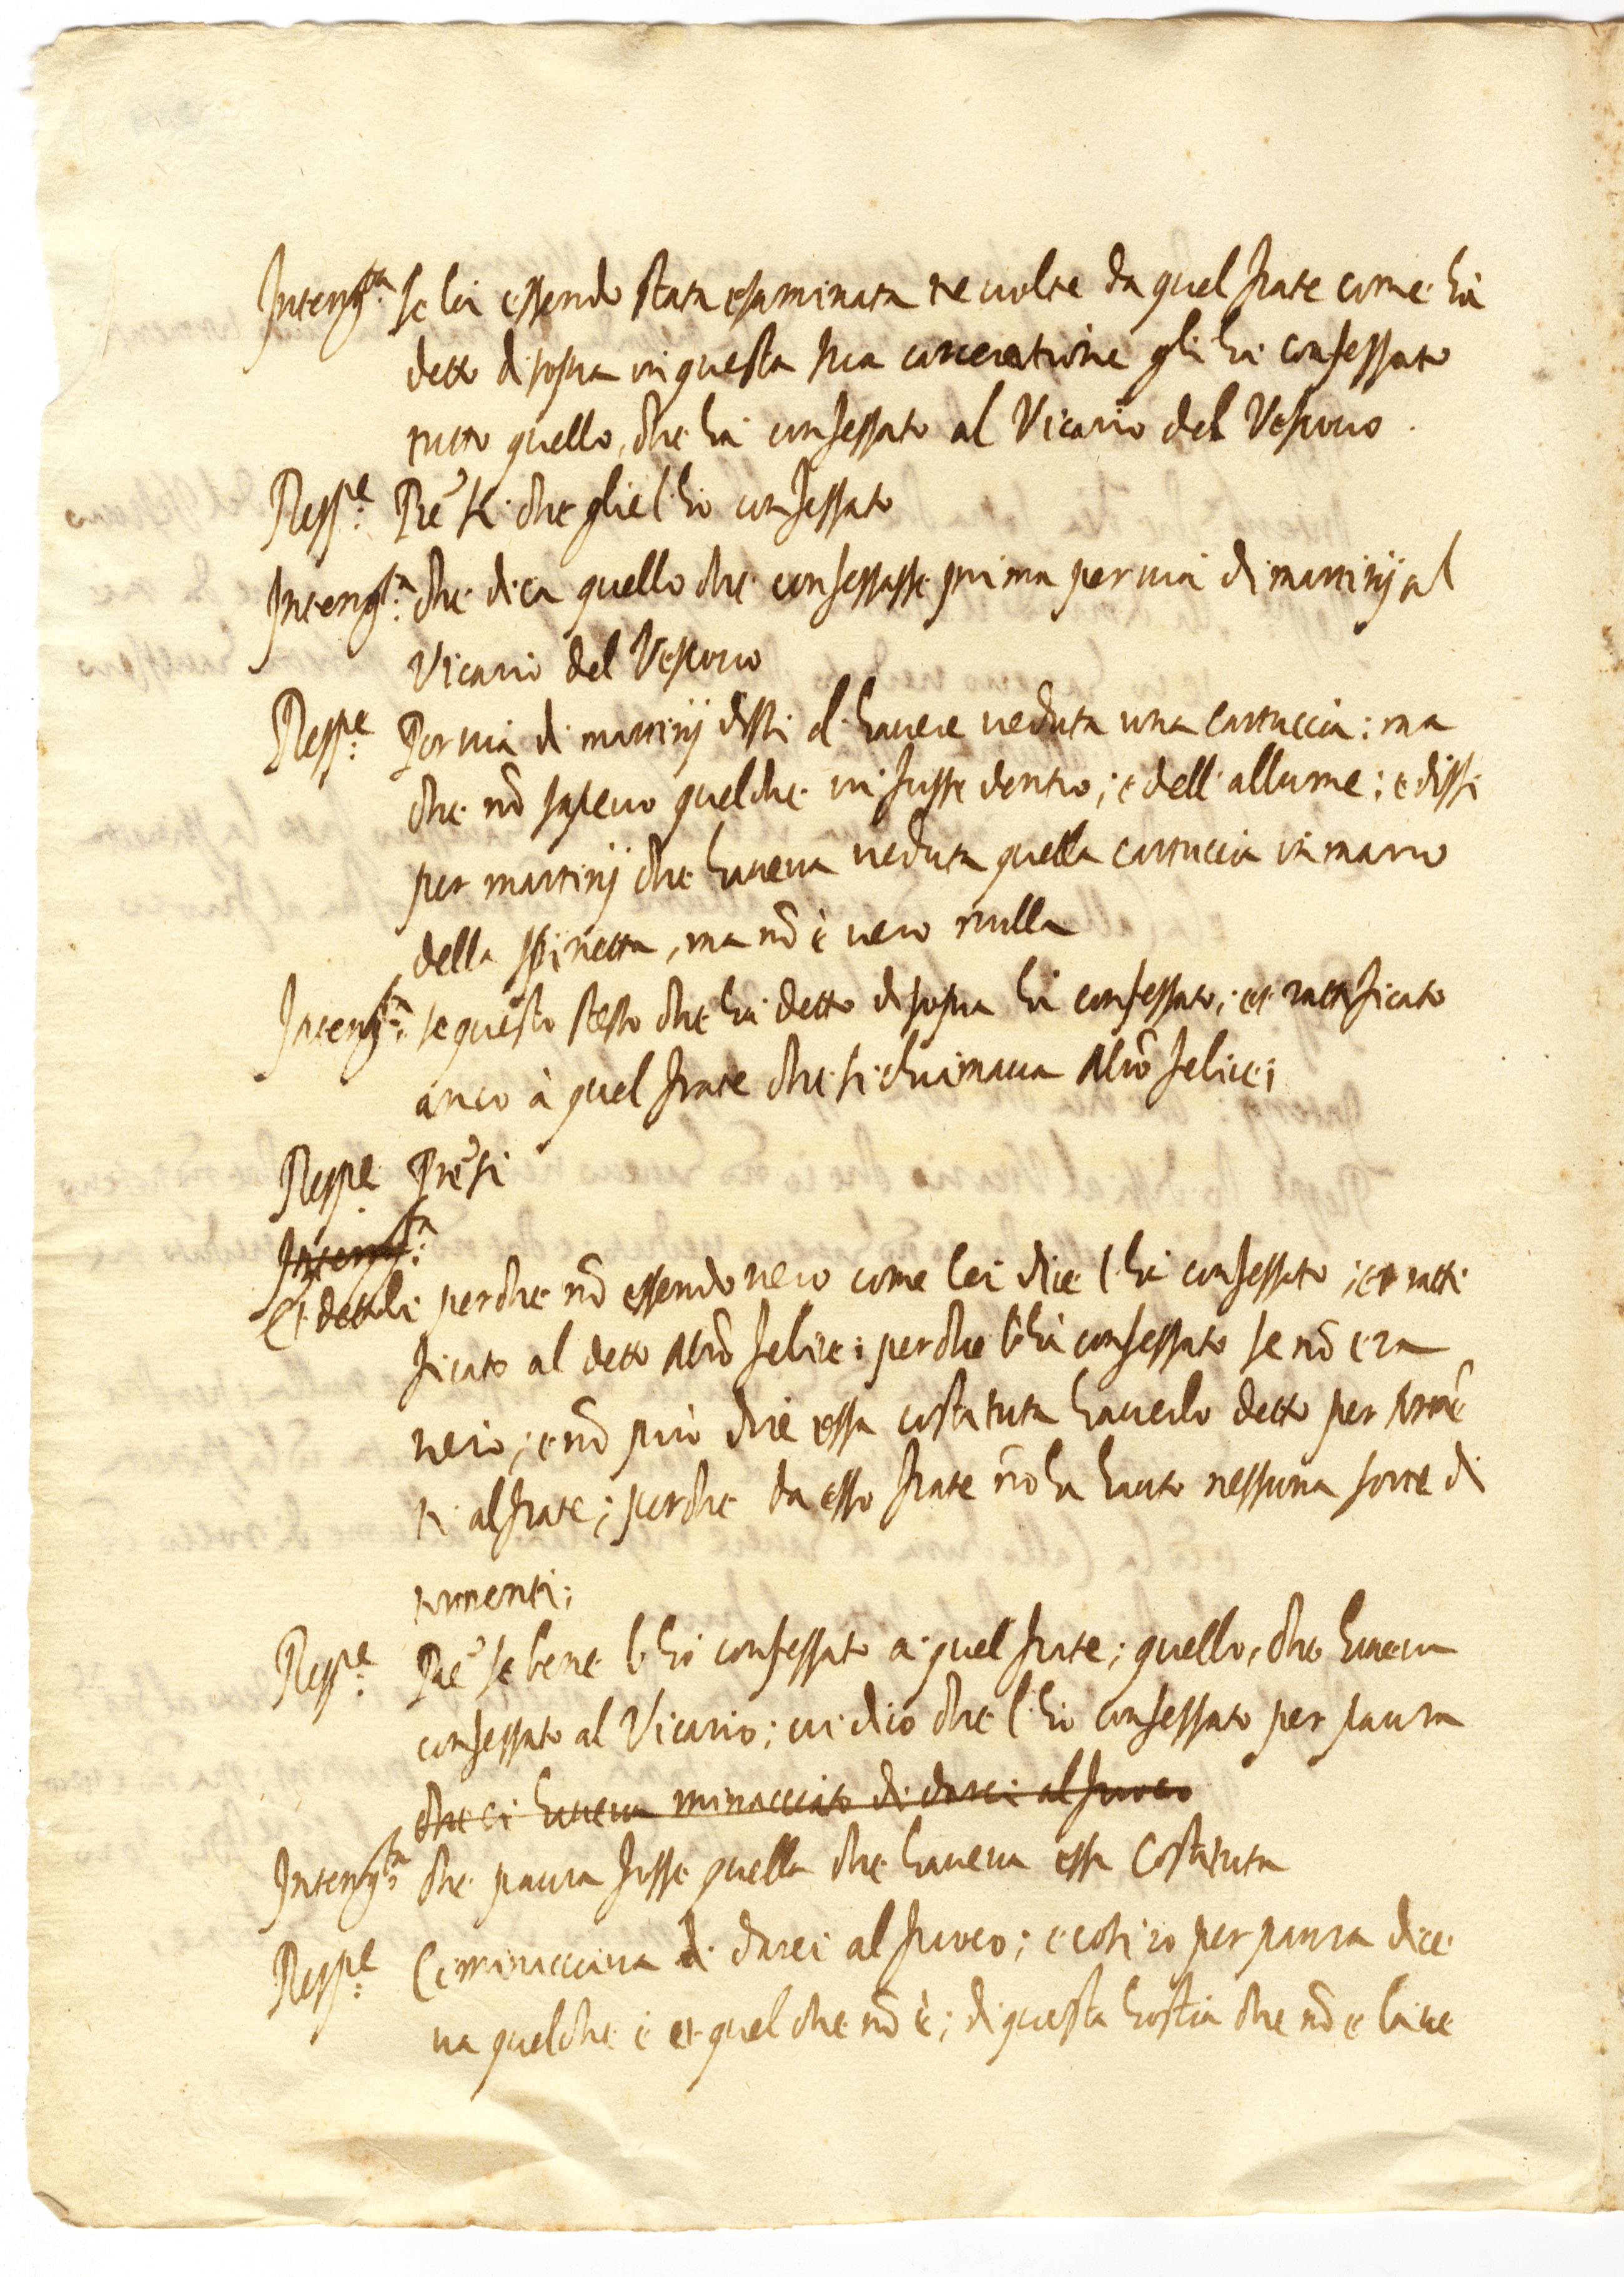 Interog.ta se lei essendo stata esaminata tre volte da quel frate come hà
detto di sopra in questa sua carceratione gli hà confessato
tutto quello, che hà confessato al Vicario del Vescouo.
Resp.e Prē si che glie l'hò confessato
Interog.ta che dica quello che confessasse prima per uia di martirij al
Vicario del Vescouo
Resp.e Per uia di martirij dissi d'hauere ueduta una cartuccia: ma
che nō sapeuo quel che ui fusse dentro; e dell'allume; e dissi
per martirij che haueua ueduta quella cartuccia in mano
della spinetta, ma nō è uero nulla
Interog.ta se questo stesso che hà detto di sopra hà confessato; et ratificato
anco à quel frate che si chiamaua felice;
Resp.e Prē si
Interog.ta
Et dettoli perche nō essendo uero come lei dice l'hà confessato; et ratti
ficato al detto felice: perche l'hà confessato se nō era
uero; e nō può dire essa costituta hauerlo detto per tormē
ti al frate; perche da esso frate nō ha hauto nessuna sorte di
tormenti;
Resp.e Prē se bene l'hò confessato a quel frate; quello, che haueua
confessato al Vicario; ui dico che l'hò confessato per paura
che ci haueua minacciato di darci al fuoco
Interog.ta che paura fusse quella che haueua essa Costituta
Resp.e Ci minacciaua di darci al fuoco; e così io per paura dice
ua quel che è et quel che nō è; di questa hostia che nō è la ue